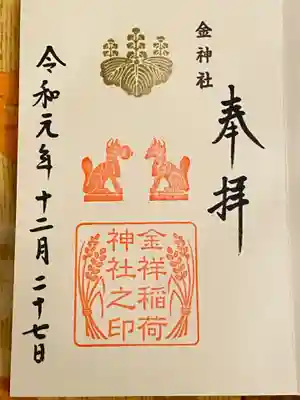 奉拝
金神社
金祥稲荷
神社之印
令和元年十二月二十七日